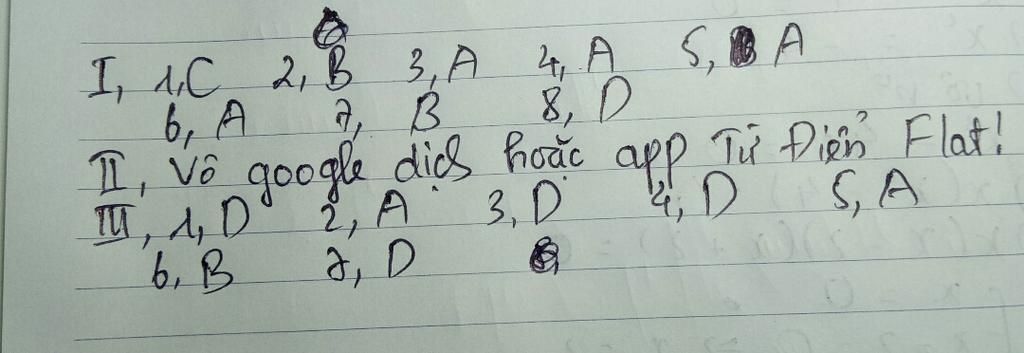 I, 1, C 2, B 3, A 4, A 5, A
6, A 7, B 8, D
II, Vô google dịch hoặc app Từ Điển Flat!
III, 1, D 2, A 3, D 4, D 5, A
6, B 7, D